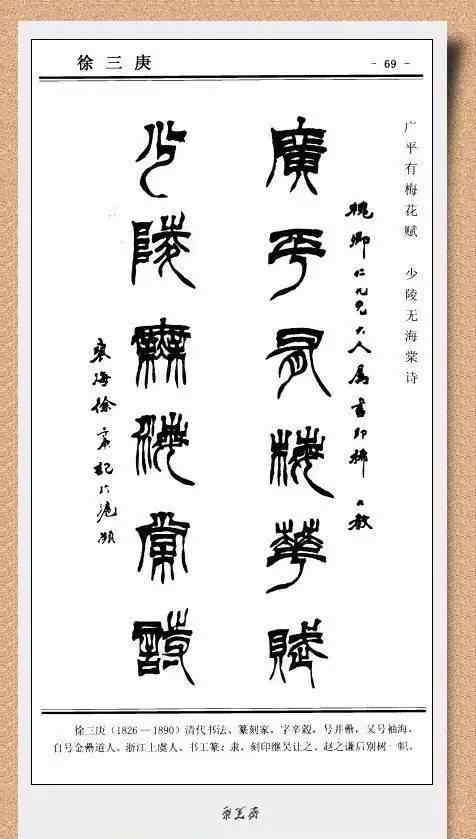 徐三庚
- 69 -
广平有梅花赋 少陵无海棠诗
廣平有梅華賦
槐卿仁兄大人属書即拂
教
少陵無海棠詩
褱海徐三庚記于滬瀕
徐三庚（1826—1890）清代书法、篆刻家。字辛穀，号井罍，又号袖海，
自号金罍道人。浙江上虞人。书工篆；隶。刻印继吴让之、赵之谦后别树一帜。